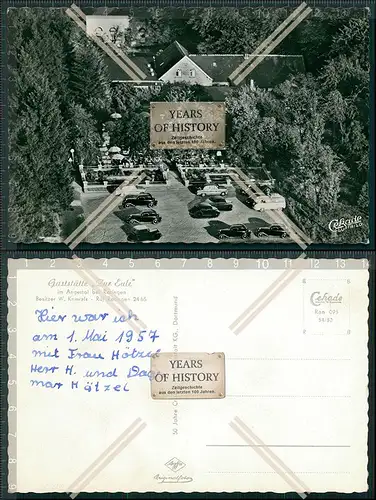 YEARS
OF HISTORY
Zeitgeschichte
aus den letzten 100 Jahren.
Cekade
1 2 3 4 5 6 7 8 9 10 11 12 13
Gaststätte "Zur Eule"
im Angertal bei Ratingen
Besitzer W.
Cekade
Hier war ich
am 1. Mai 1957
mit Frau Hötzel
Herr H. und Dag
mar Hötzel
YEARS
OF HISTORY
Zeitgeschichte
aus den letzten 100 Jahren.
50 Jahre
KG., Dortmund
Agfa
Originalfoto